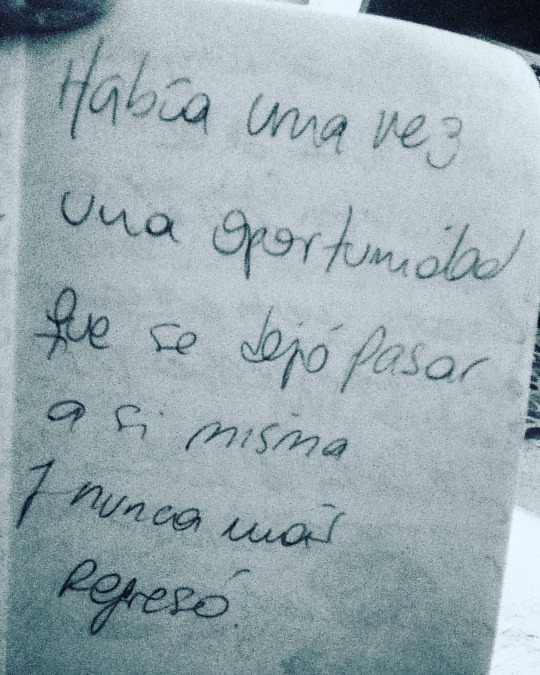 Había una vez
una oportunidad
que se dejó pasar
a si misma
y nunca más
regresó.